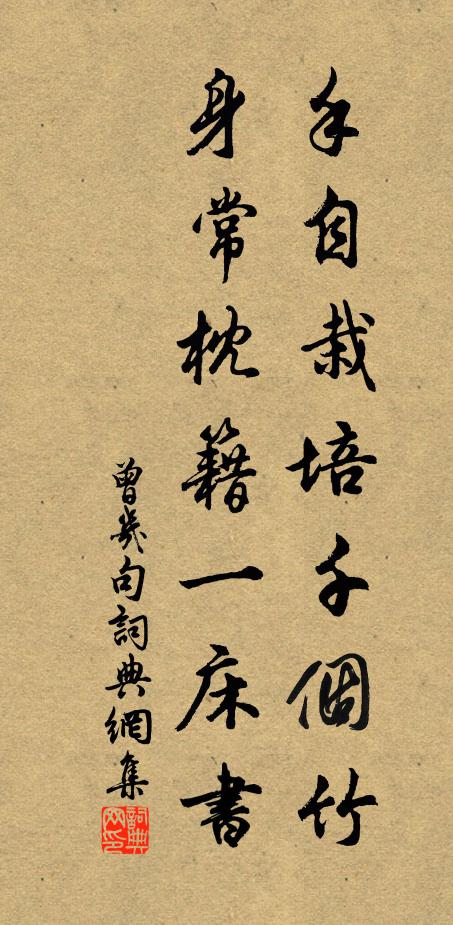 手自栽培千個竹
身常枕籍一床書
曾幾句詞典網集
詞典网印